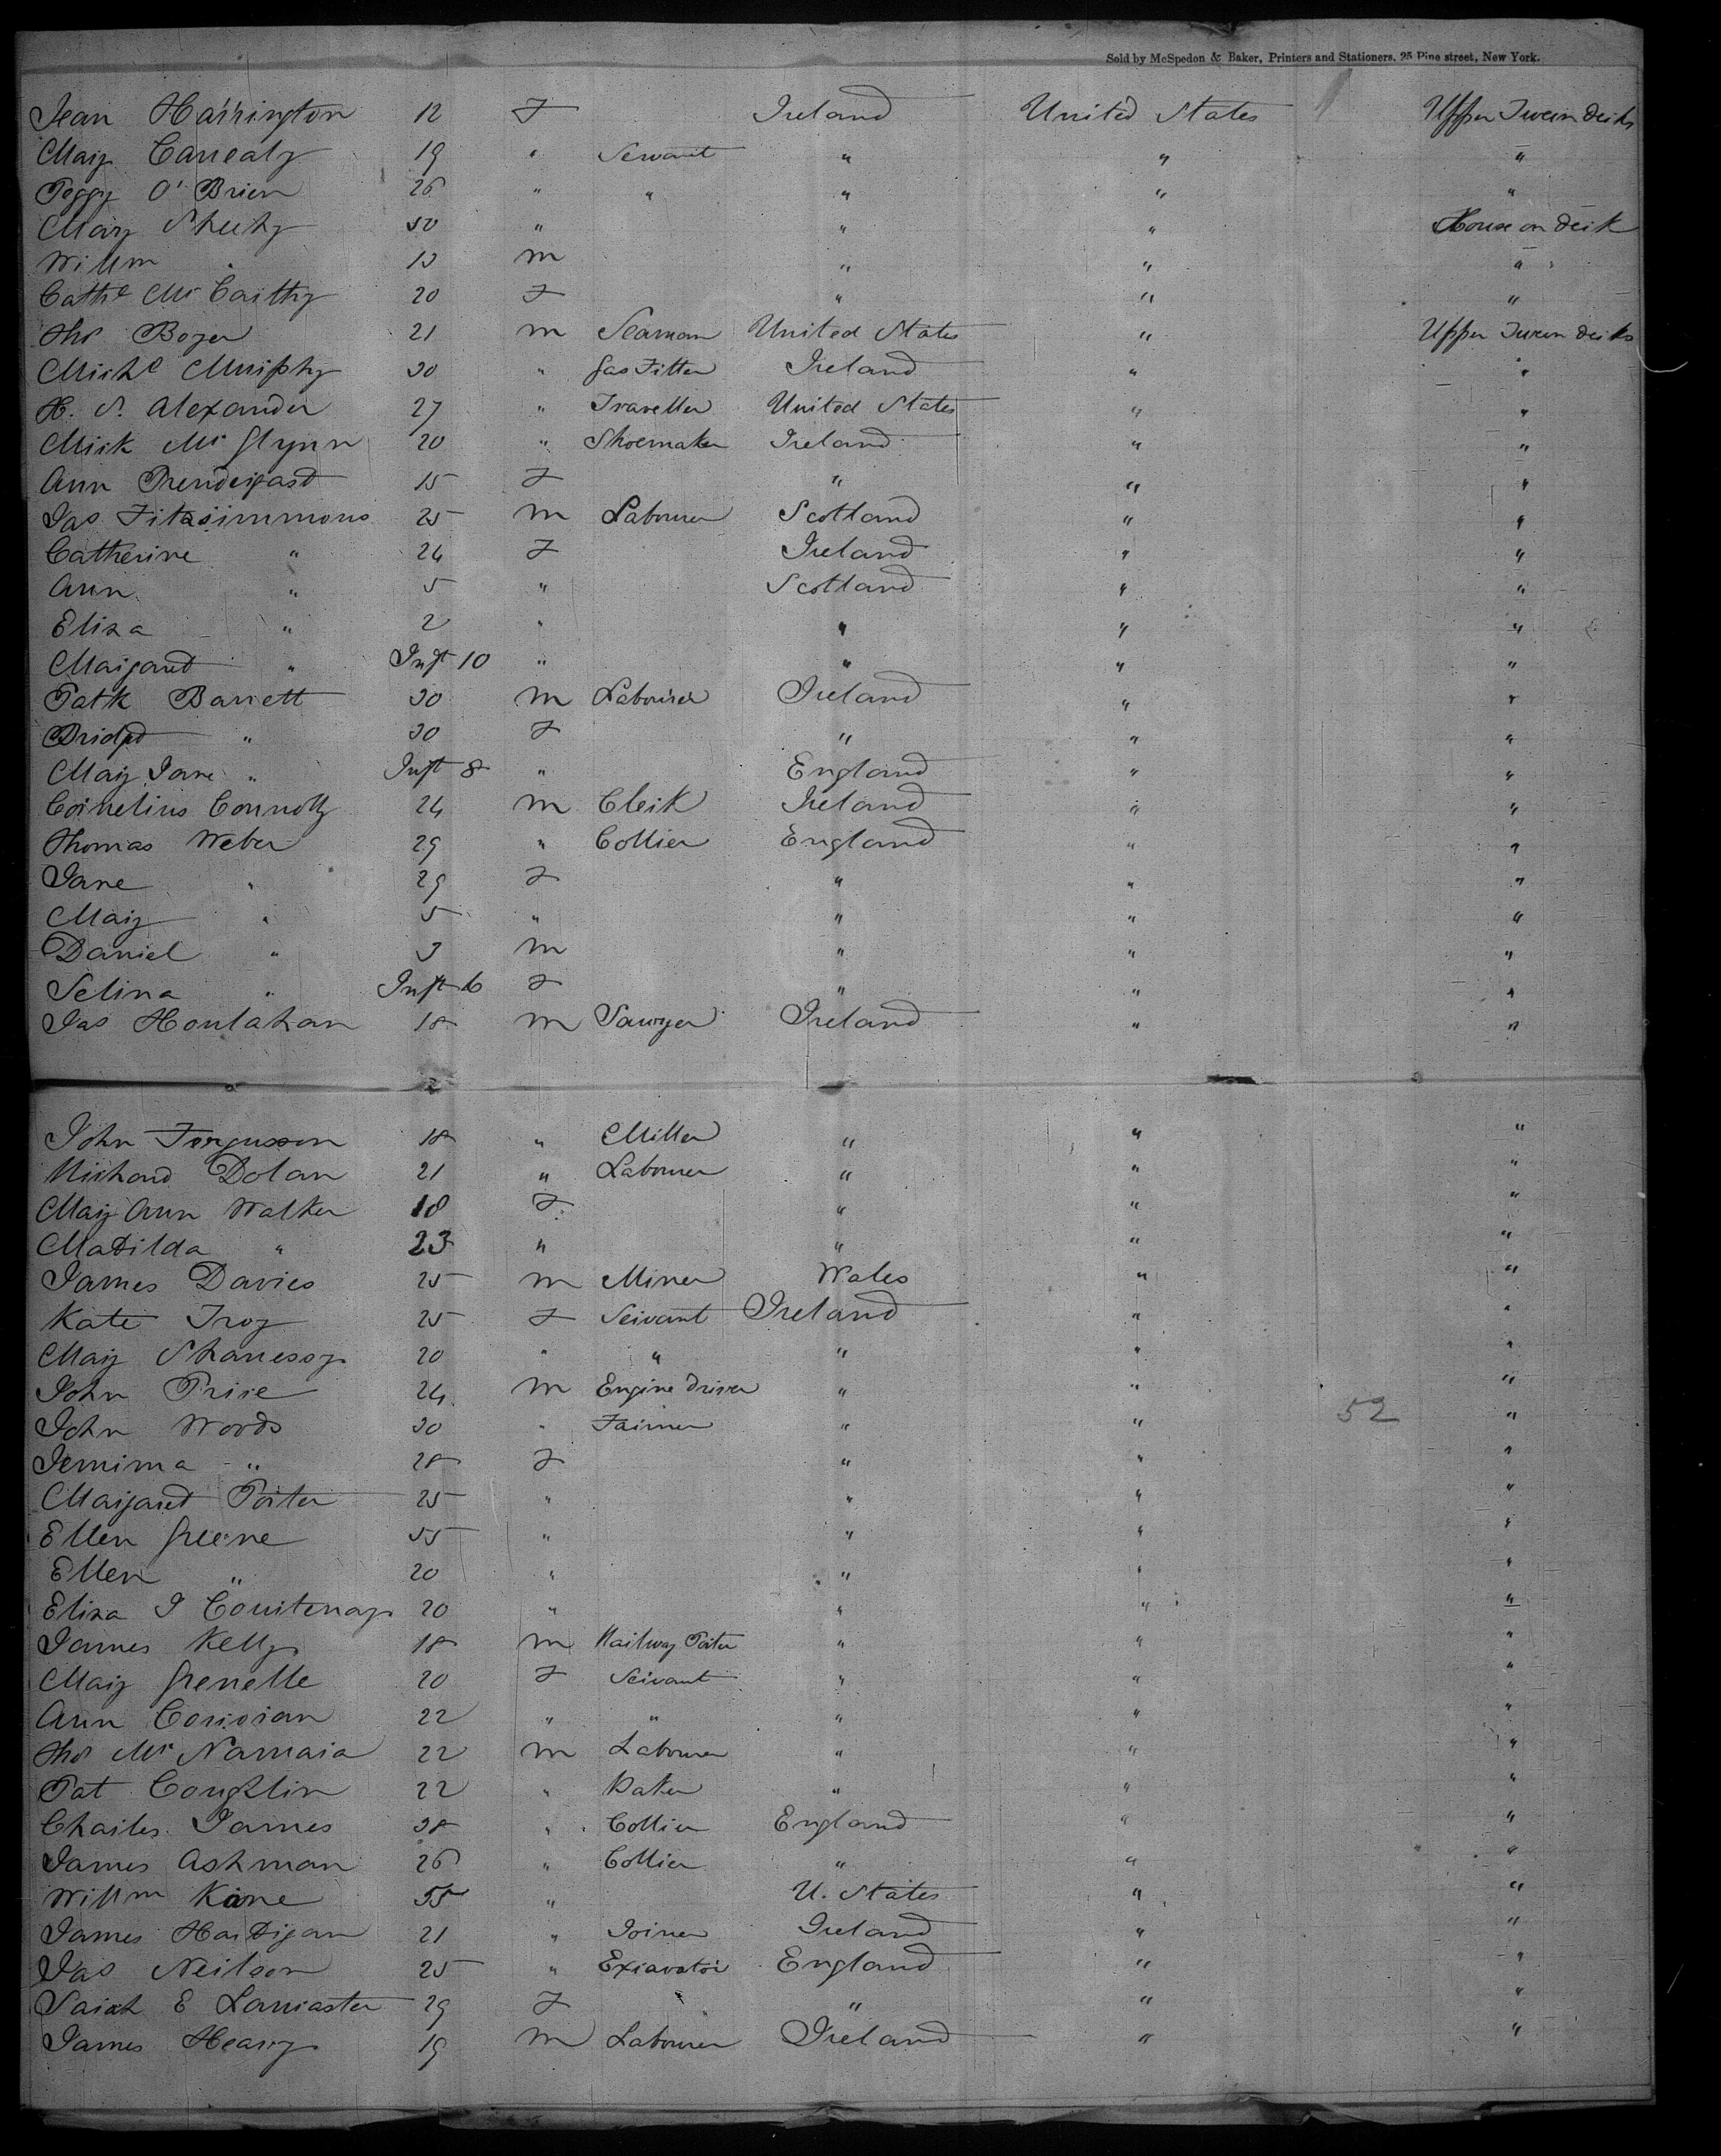 Sold by McSpedon & Baker, Printers and Stationers, 25 Pine street, New York.
Jean Harrington 12 F Ireland United States Upper Tween decks
Mary Canealy 19 " Servant " " "
Peggy O'Brien 26 " " " " "
Mary Sheehy 50 " " " House on deck
Willm " 13 m " " "
Cathe McCarthy 20 F " " "
Thos Boyer 21 m Seaman United States " Upper Tween decks
Michl Murphy 30 " Gas Fitter Ireland " "
H. S. Alexander 27 " Traveller United States " "
Mick McGlynn 20 " Shoemaker Ireland " "
Ann Prendergast 15 F " " "
Jas Fitzsimmons 25 m Labourer Scotland " "
Catherine " 24 F Ireland " "
Ann " 5 " Scotland " "
Eliza " 2 " " " "
Margaret " Inft 10 " " " "
Patk Barrett 30 m Labourer Ireland " "
Bridget " 30 F " " "
Mary Jane " Inft 8 " England " "
Cornelius Connolly 24 m Clerk Ireland " "
Thomas Weber 29 " Collier England " "
Jane " 29 F " " "
Mary " 5 " " " "
Daniel " 3 m " " "
Selina " Inft 6 F " " "
Jas Houlahan 18 m Sawyer Ireland " "
John Forgusson 18 " Miller " " "
Richard Dolan 21 " Labourer " " "
Mary Ann Walker 18 F " " "
Matilda " 23 " " " "
James Davies 25 m Miner Wales " "
Kate Troy 25 F Servant Ireland " "
Mary Shanessy 20 " " " " "
John Price 24 m Engine Driver " " "
John Woods 30 " Farmer " " 52 "
Jemima " 28 F " " "
Margaret Porter 25 " " " "
Ellen Greene 55 " " " "
Ellen " 20 " " " "
Eliza J Courtenay 20 " " " "
James Kelly 18 m Railway Porter " " "
Mary Grenelle 20 F Servant " " "
Ann Corrioran 22 " " " " "
Thos McNamara 22 m Labourer " " "
Pat Coughlin 22 " Baker " " "
Charles James 38 " Collier England " "
James Ashman 26 " Collier " " "
Willm Kane 55 " U. States " "
James Hartigan 21 " Joiner Ireland " "
Jas Neilson 25 " Excavator England " "
Sarah E Lancaster 29 F " " "
James Heary 19 m Labourer Ireland " "